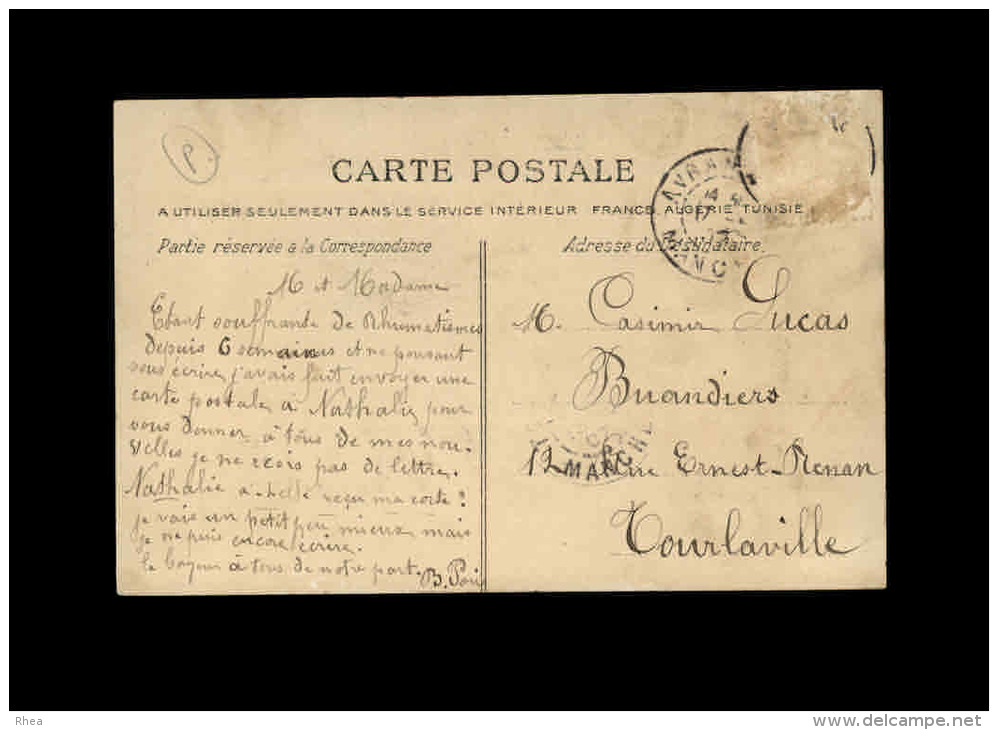 P.
CARTE POSTALE
A UTILISER SEULEMENT DANS LE SERVICE INTÉRIEUR FRANCE, ALGÉRIE TUNISIE
Partie réservée a la Correspondance
Adresse du Destinataire
AVRAN
MANC
M et Madame
Etant souffrante de Rhumatismes
depuis 6 semaines et ne pouvant
vous écrire, j'avais fait envoyer une
carte postale, a Nathalie pour
vous donner, à tous de mes nou-
velles je ne reçois pas de lettre.
Nathalie a-t-elle reçu ma carte ?
je vais un petit peu mieux mais
je ne puis encore écrire.
à tous de notre part.
M. Casimir Lucas
Buandiers
12 Rue Ernest-Renan
Tourlaville
Rhea
delcampe.net